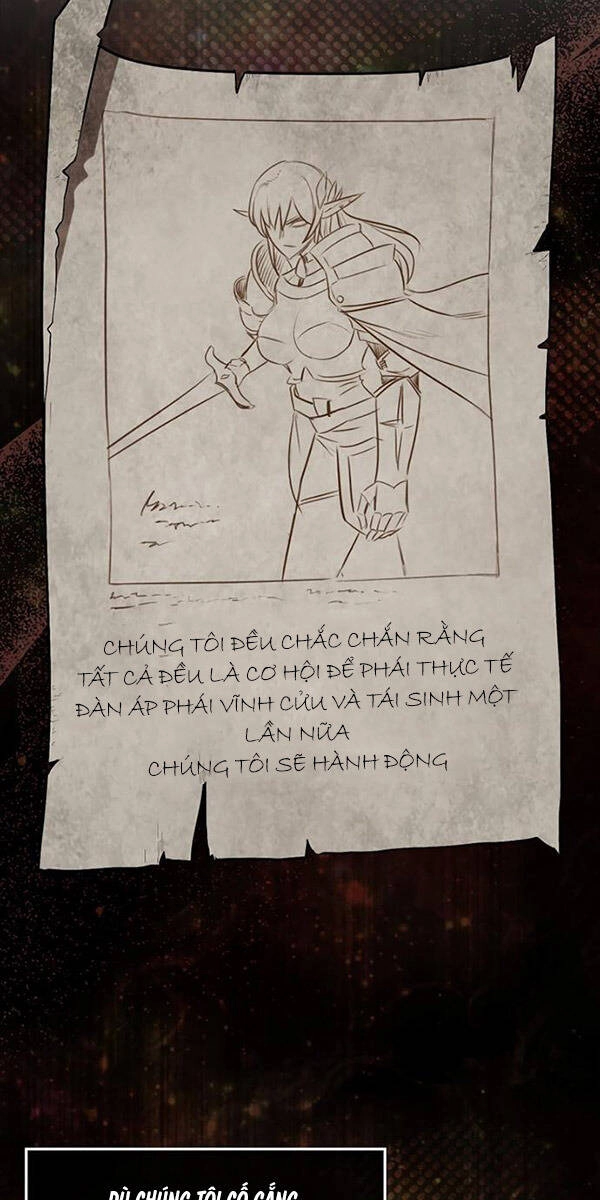 CHÚNG TÔI ĐỀU CHẮC CHẮN RẰNG
TẤT CẢ ĐỀU LÀ CƠ HỘI ĐỂ PHÁI THỰC TẾ
ĐÀN ÁP PHÁI VĨNH CỬU VÀ TÁI SINH MỘT
LẦN NỮA
CHÚNG TÔI SẼ HÀNH ĐỘNG
DÙ CHÚNG TÔI CỐ GẮNG